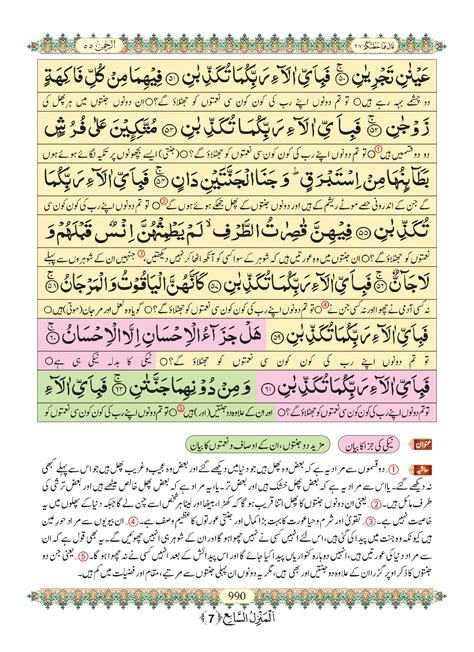 قَالَ فَمَا خَطْبُكُمْ ٢٧
اَلرَّحْمٰن ٥٥
عَيْنٰنِ تَجْرِيٰنِ ۝٥٠ فَبِاَيِّ اٰلَآءِ رَبِّكُمَا تُكَذِّبٰنِ ۝٥١ فِيْهِمَا مِنْ كُلِّ فَاكِهَةٍ
دو چشمے بہہ رہے ہیں ○ تو تم دونوں اپنے رب کی کون کون سی نعمتوں کو جھٹلاؤ گے؟ ○ ان دونوں جنتوں میں ہر پھل کی
زَوْجٰنِ ۝٥٢ فَبِاَيِّ اٰلَآءِ رَبِّكُمَا تُكَذِّبٰنِ ۝٥٣ مُتَّكِـِٕيْنَ عَلٰى فُرُشٍۭ
دو دو قسمیں ہیں ① ○ تو تم دونوں اپنے رب کی کون کون سی نعمتوں کو جھٹلاؤ گے؟ ○ (جنتی) ایسے بچھونوں پر تکیہ لگائے ہوئے ہوں
بَطَآىِٕنُهَا مِنْ اِسْتَبْرَقٍ ؕ وَ جَنَا الْجَنَّتَيْنِ دَانٍ ۝٥٤ فَبِاَيِّ اٰلَآءِ رَبِّكُمَا
گے جن کے اندرونی حصے موٹے ریشم کے ہیں اور دونوں جنتوں کے پھل جھکے ہوئے ہوں گے ② ○ تو تم دونوں اپنے رب کی کون کون سی
تُكَذِّبٰنِ ۝٥٥ فِيْهِنَّ قٰصِرٰتُ الطَّرْفِ ۙ لَمْ يَطْمِثْهُنَّ اِنْسٌ قَبْلَهُمْ وَ
نعمتوں کو جھٹلاؤ گے؟ ○ ان جنتوں میں وہ عورتیں ہیں کہ شوہر کے سوا کسی کو آنکھ اٹھا کر نہیں دیکھتیں، ③ جنہیں ان کے شوہروں سے پہلے
لَا جَآنٌّ ۝٥٦ فَبِاَيِّ اٰلَآءِ رَبِّكُمَا تُكَذِّبٰنِ ۝٥٧ كَاَنَّهُنَّ الْيَاقُوْتُ وَ الْمَرْجَانُ ۝٥٨
نہ کسی آدمی نے چھوا اور نہ کسی جن نے ④ ○ تو تم دونوں اپنے رب کی کون کون سی نعمتوں کو جھٹلاؤ گے؟ ○ گویا وہ لعل اور مرجان (موتی) ہیں ○
فَبِاَيِّ اٰلَآءِ رَبِّكُمَا تُكَذِّبٰنِ ۝٥٩ هَلْ جَزَآءُ الْاِحْسَانِ اِلَّا الْاِحْسَانُ ۝٦٠
تو تم دونوں اپنے رب کی کون کون سی نعمتوں کو جھٹلاؤ گے؟ ○ نیکی کا بدلہ نیکی ہی ہے ○
فَبِاَيِّ اٰلَآءِ رَبِّكُمَا تُكَذِّبٰنِ ۝٦١ وَ مِنْ دُوْنِهِمَا جَنَّتٰنِ ۝٦٢ فَبِاَيِّ اٰلَآءِ
تو تم دونوں اپنے رب کی کون کون سی نعمتوں کو جھٹلاؤ گے؟ ○ اور ان کے علاوہ دو جنتیں (اور) ہیں ⑤ ○ تو تم دونوں اپنے رب کی کون کون سی نعمتوں کو
عنوان نیکی کی جزا کا بیان مزید دو جنتوں، ان کے اوصاف و نعمتوں کا بیان
حاشیہ ①۔ دو قسموں سے مراد یہ ہے کہ بعض وہ پھل ہیں جو دنیا میں دیکھے گئے اور بعض وہ عجیب و غریب پھل ہیں جو اس سے پہلے کبھی
نہ دیکھے گئے۔ یا اس سے مراد یہ ہے کہ بعض پھل خشک ہیں اور بعض تر۔ یا، یہ مراد ہے کہ بعض پھل خالص میٹھے ہیں اور بعض ترشی کی
طرف مائل ہیں۔ ②۔ ان دونوں جنتوں کا پھل اتنا قریب ہو گا کہ کھڑا، بیٹھا اور لیٹا ہر شخص اسے چن لے گا جبکہ دنیا کے پھلوں میں یہ
خاصیت نہیں ہے۔ ③۔ تقویٰ اور شرم و حیا عورت کا بہت بڑا کمال اور جنتی عورتوں کا عظیم وصف ہے۔ ④۔ ان بیویوں سے مراد حورِ عین
ہیں کیونکہ وہ جنت میں پیدا کی گئی ہیں، اس لئے ان کے شوہروں کے سوا انہیں کسی نے نہ چھوا ہو گا۔ یہ بھی قول ہے کہ ان
سے مراد دنیا کی عورتیں ہیں، انہیں دوبارہ کنواریاں پیدا کیا جائے گا اور اس پیدائش کے بعد انہیں کسی نے نہ چھوا ہو گا۔ ⑤۔ یعنی جن دو
جنتوں کا ذکر اوپر گزرا ان کے علاوہ دو جنتیں اور بھی ہیں، مگر یہ دونوں ان پہلی جنتوں سے مرتبے، مقام اور فضیلت میں کم ہیں۔
990
اَلْمَنْزِلُ السَّابِع ﴿7﴾